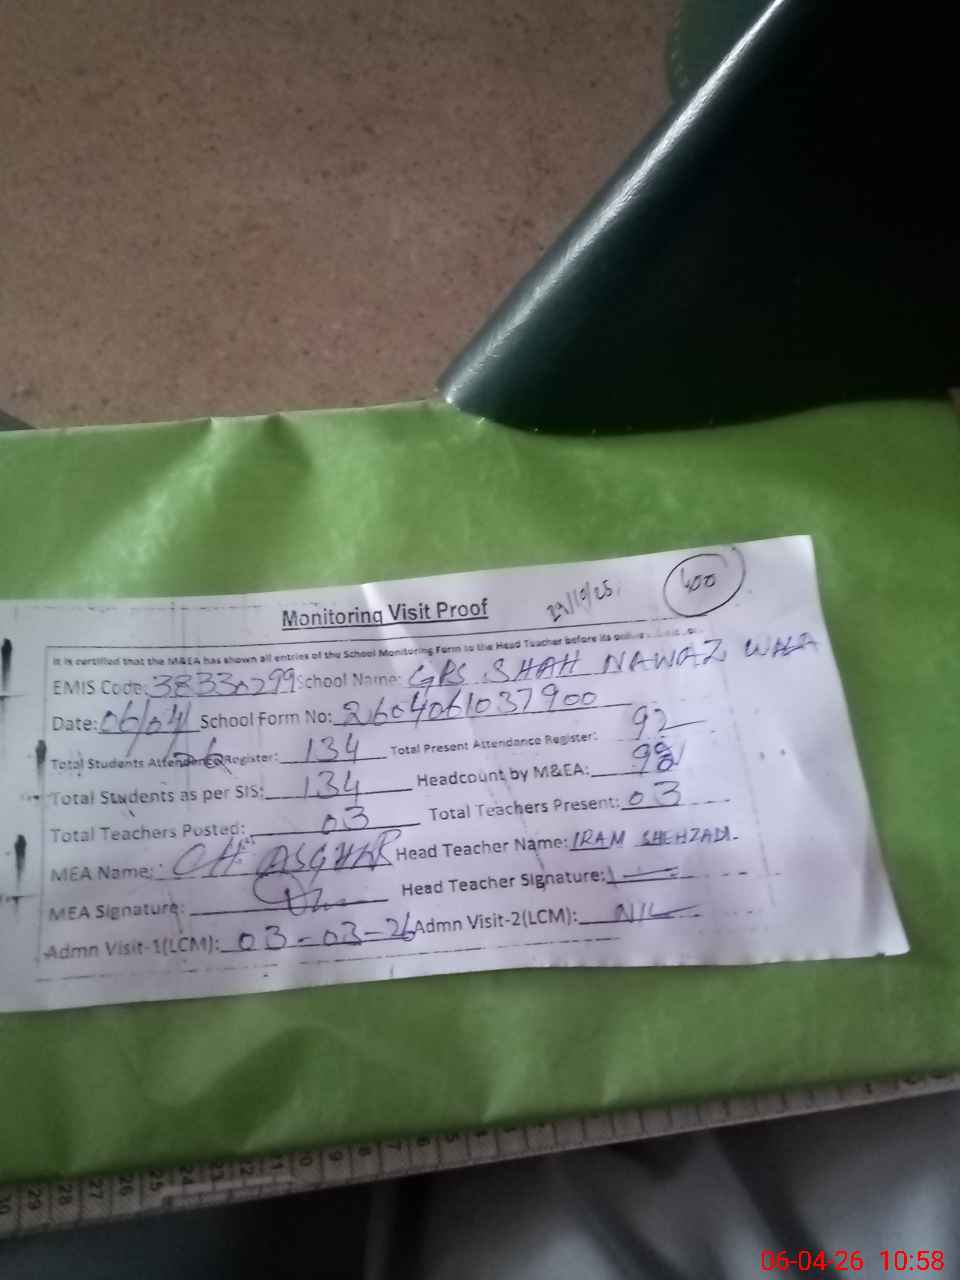 Monitoring Visit Proof 29/10/25 300
It is certified that the M&EA has shown all entries of the School Monitoring Form to the Head Teacher before its
EMIS Code: 38330299 School Name: GPS SHAH NAWAZ WALA
Date: 06/04/26 School Form No: 2604061037900
Total Students Attendance Register: 134 Total Present Attendance Register: 92
Total Students as per SIS: 134 Headcount by M&EA: 98
Total Teachers Posted: 03 Total Teachers Present: 03
MEA Name: CH ASGHAR Head Teacher Name: IRAM SHEHZADI.
MEA Signature: Head Teacher Signature:
Admn Visit-1(LCM): 03-03-26 Admn Visit-2(LCM): NIL
30 29 28 27 26 25 24 23 22 21 20 19 18 17 16 15
06-04-26 10:58